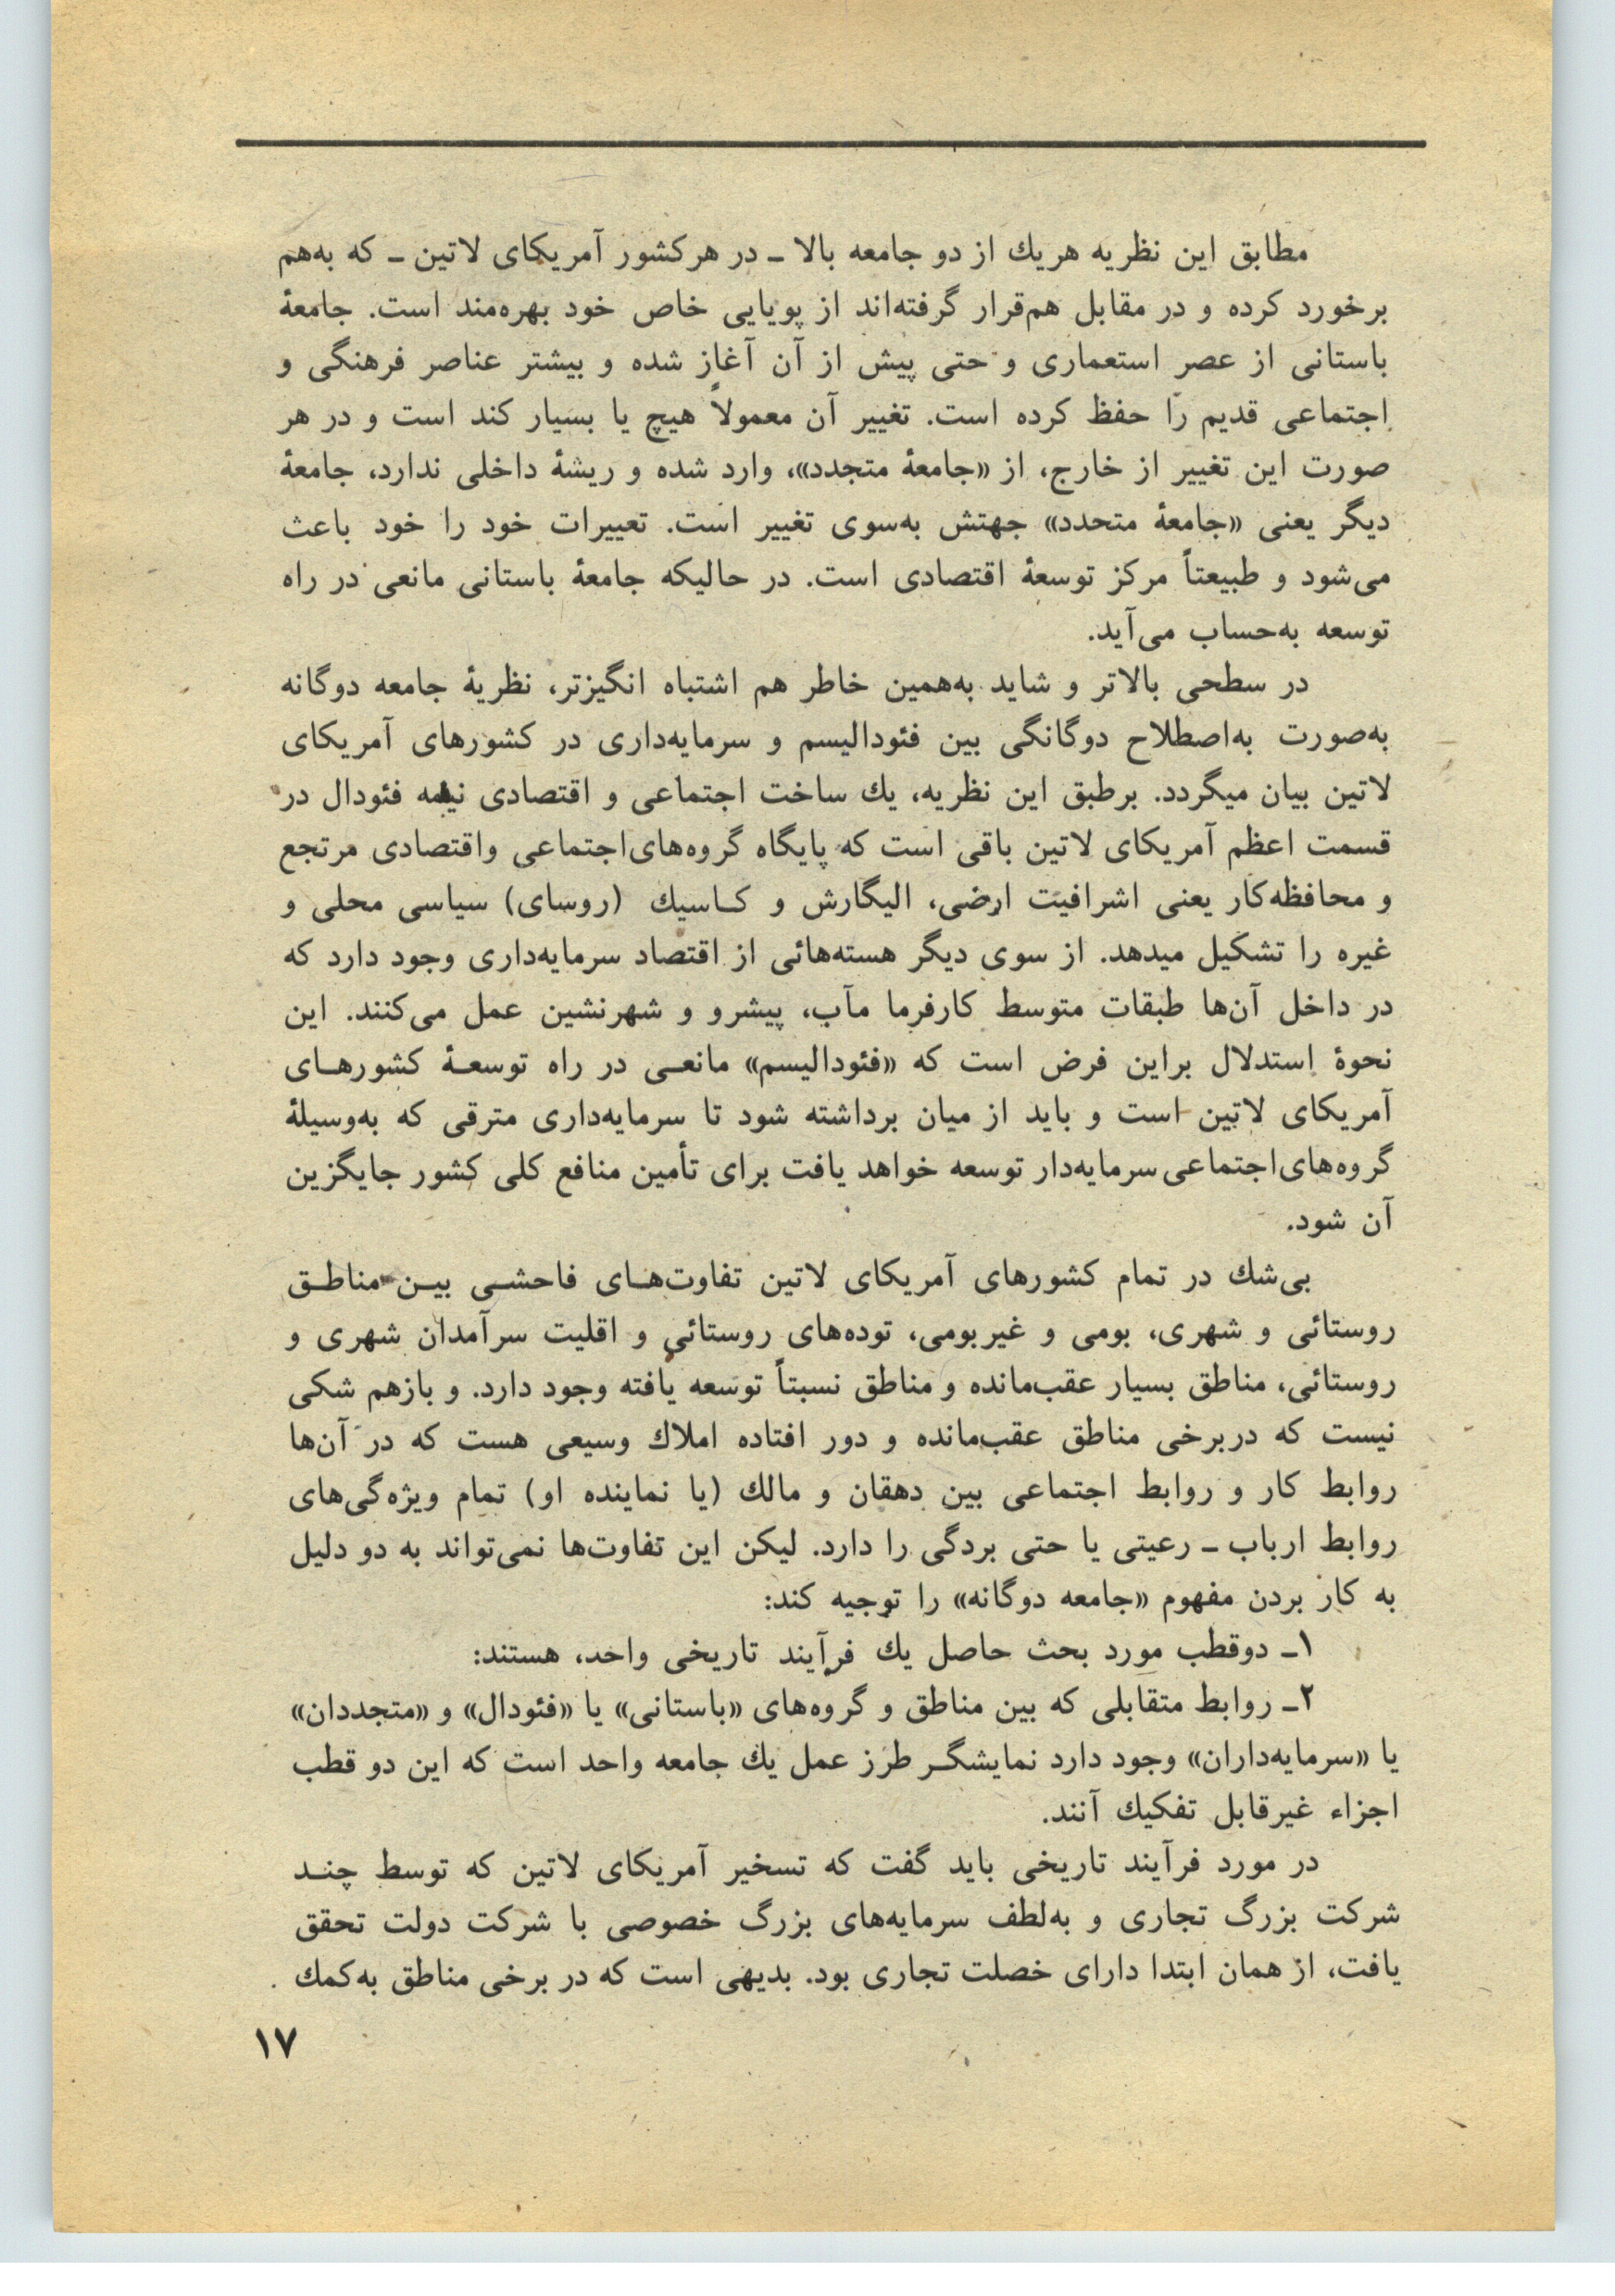 مطابق این نظریه هریك از دو جامعه بالا ـ در هرکشور آمریکای لاتین ـ که به‌هم
برخورد کرده و در مقابل هم‌قرار گرفته‌اند از پویایی خاص خود بهره‌مند است. جامعهٔ
باستانی از عصر استعماری و حتی پیش از آن آغاز شده و بیشتر عناصر فرهنگی و
اجتماعی قدیم را حفظ کرده است. تغییر آن معمولاً هیچ یا بسیار کند است و در هر
صورت این تغییر از خارج، از «جامعهٔ متجدد»، وارد شده و ریشهٔ داخلی ندارد، جامعهٔ
دیگر یعنی «جامعهٔ متحدد» جهتش به‌سوی تغییر است. تعییرات خود را خود باعث
می‌شود و طبیعتاً مرکز توسعهٔ اقتصادی است. در حالیکه جامعهٔ باستانی مانعی در راه
توسعه به‌حساب می‌آید.
در سطحی بالاتر و شاید به‌همین خاطر هم اشتباه انگیزتر، نظریهٔ جامعه دوگانه
به‌صورت به‌اصطلاح دوگانگی بین فئودالیسم و سرمایه‌داری در کشورهای آمریکای
لاتین بیان میگردد. برطبق این نظریه، یك ساخت اجتماعی و اقتصادی نیمه فئودال در
قسمت اعظم آمریکای لاتین باقی است که پایگاه گروه‌های‌اجتماعی واقتصادی مرتجع
و محافظه‌کار یعنی اشرافیت ارضی، الیگارش و کـاسیك (روسای) سیاسی محلی و
غیره را تشکیل میدهد. از سوی دیگر هسته‌هائی از اقتصاد سرمایه‌داری وجود دارد که
در داخل آن‌ها طبقات متوسط کارفرما مآب، پیشرو و شهرنشین عمل می‌کنند. این
نحوهٔ استدلال براین فرض است که «فئودالیسم» مانعـی در راه توسعـهٔ کشورهـای
آمریکای لاتین است و باید از میان برداشته شود تا سرمایه‌داری مترقی که به‌وسیلهٔ
گروه‌های‌اجتماعی سرمایه‌دار توسعه خواهد یافت برای تأمین منافع کلی کشور جایگزین
آن شود.
بی‌شك در تمام کشورهای آمریکای لاتین تفاوت‌هـای فاحشـی بیـن مناطـق
روستائی و شهری، بومی و غیربومی، توده‌های روستائی و اقلیت سرآمدان شهری و
روستائی، مناطق بسیار عقب‌مانده و مناطق نسبتاً توسعه یافته وجود دارد. و بازهم شکی
نیست که دربرخی مناطق عقب‌مانده و دور افتاده املاك وسیعی هست که در آن‌ها
روابط کار و روابط اجتماعی بین دهقان و مالك (یا نماینده او) تمام ویژه‌گی‌های
روابط ارباب ـ رعیتی یا حتی بردگی را دارد. لیکن این تفاوت‌ها نمی‌تواند به دو دلیل
به کار بردن مفهوم «جامعه دوگانه» را توجیه کند:
۱ـ دوقطب مورد بحث حاصل یك فرآیند تاریخی واحد، هستند:
۲ـ روابط متقابلی که بین مناطق و گروه‌های «باستانی» یا «فئودال» و «متجددان»
یا «سرمایه‌داران» وجود دارد نمایشگـر طرز عمل یك جامعه واحد است که این دو قطب
اجزاء غیرقابل تفکیك آنند.
در مورد فرآیند تاریخی باید گفت که تسخیر آمریکای لاتین که توسط چنـد
شرکت بزرگ تجاری و به‌لطف سرمایه‌های بزرگ خصوصی با شرکت دولت تحقق
یافت، از همان ابتدا دارای خصلت تجاری بود. بدیهی است که در برخی مناطق به‌کمك
۱۷